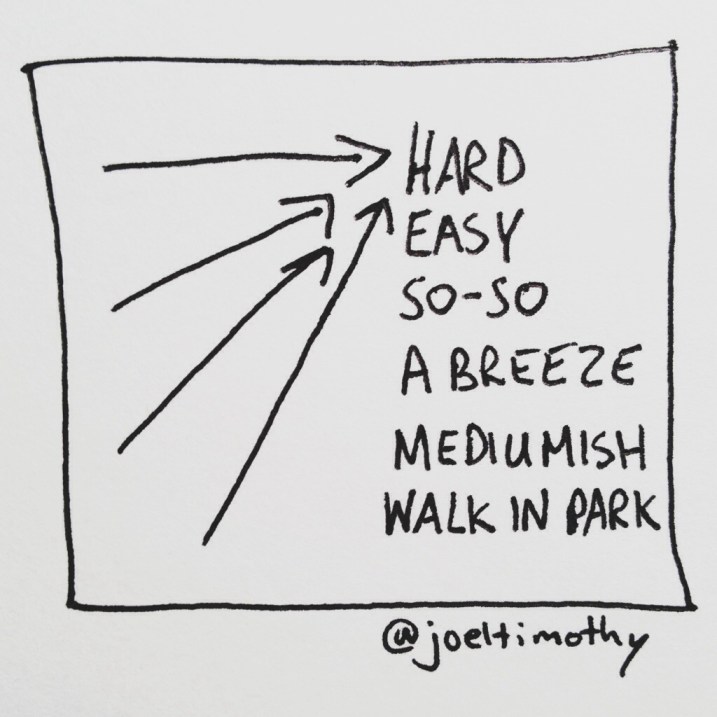 HARD
EASY
SO-SO
A BREEZE
MEDIUMISH
WALK IN PARK
@joeltimothy